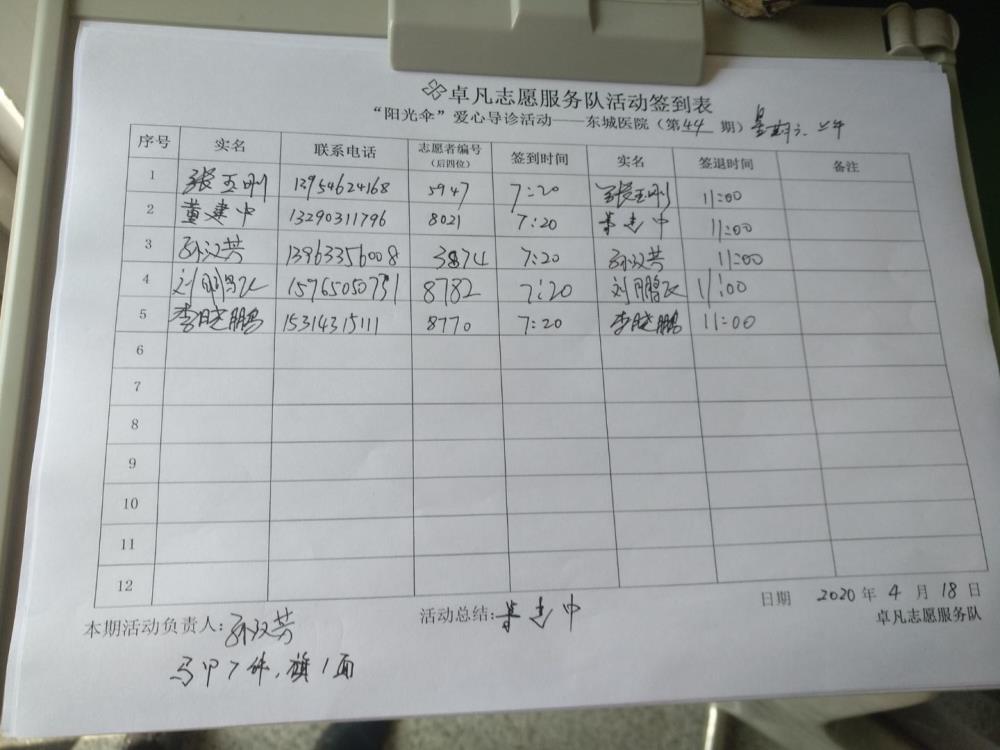 卓凡志愿服务队活动签到表
“阳光伞”爱心导诊活动——东城医院（第44期）星期六、上午
序号 实名 联系电话 志愿者编号（后四位） 签到时间 实名 签退时间 备注
1 张玉刚 13954624168 5947 7:20 张玉刚 11:00
2 董建中 13290311796 8021 7:20 董建中 11:00
3 孙汉芸 13963356008 3874 7:20 孙汉芸 11:00
4 刘鹏飞 15765050731 8782 7:20 刘鹏飞 11:00
5 李晓鹏 15314315111 8770 7:20 李晓鹏 11:00
6
7
8
9
10
11
12
日期 2020年4月18日
本期活动负责人：孙汉芸 活动总结：董建中
卓凡志愿服务队
马甲7件、旗1面